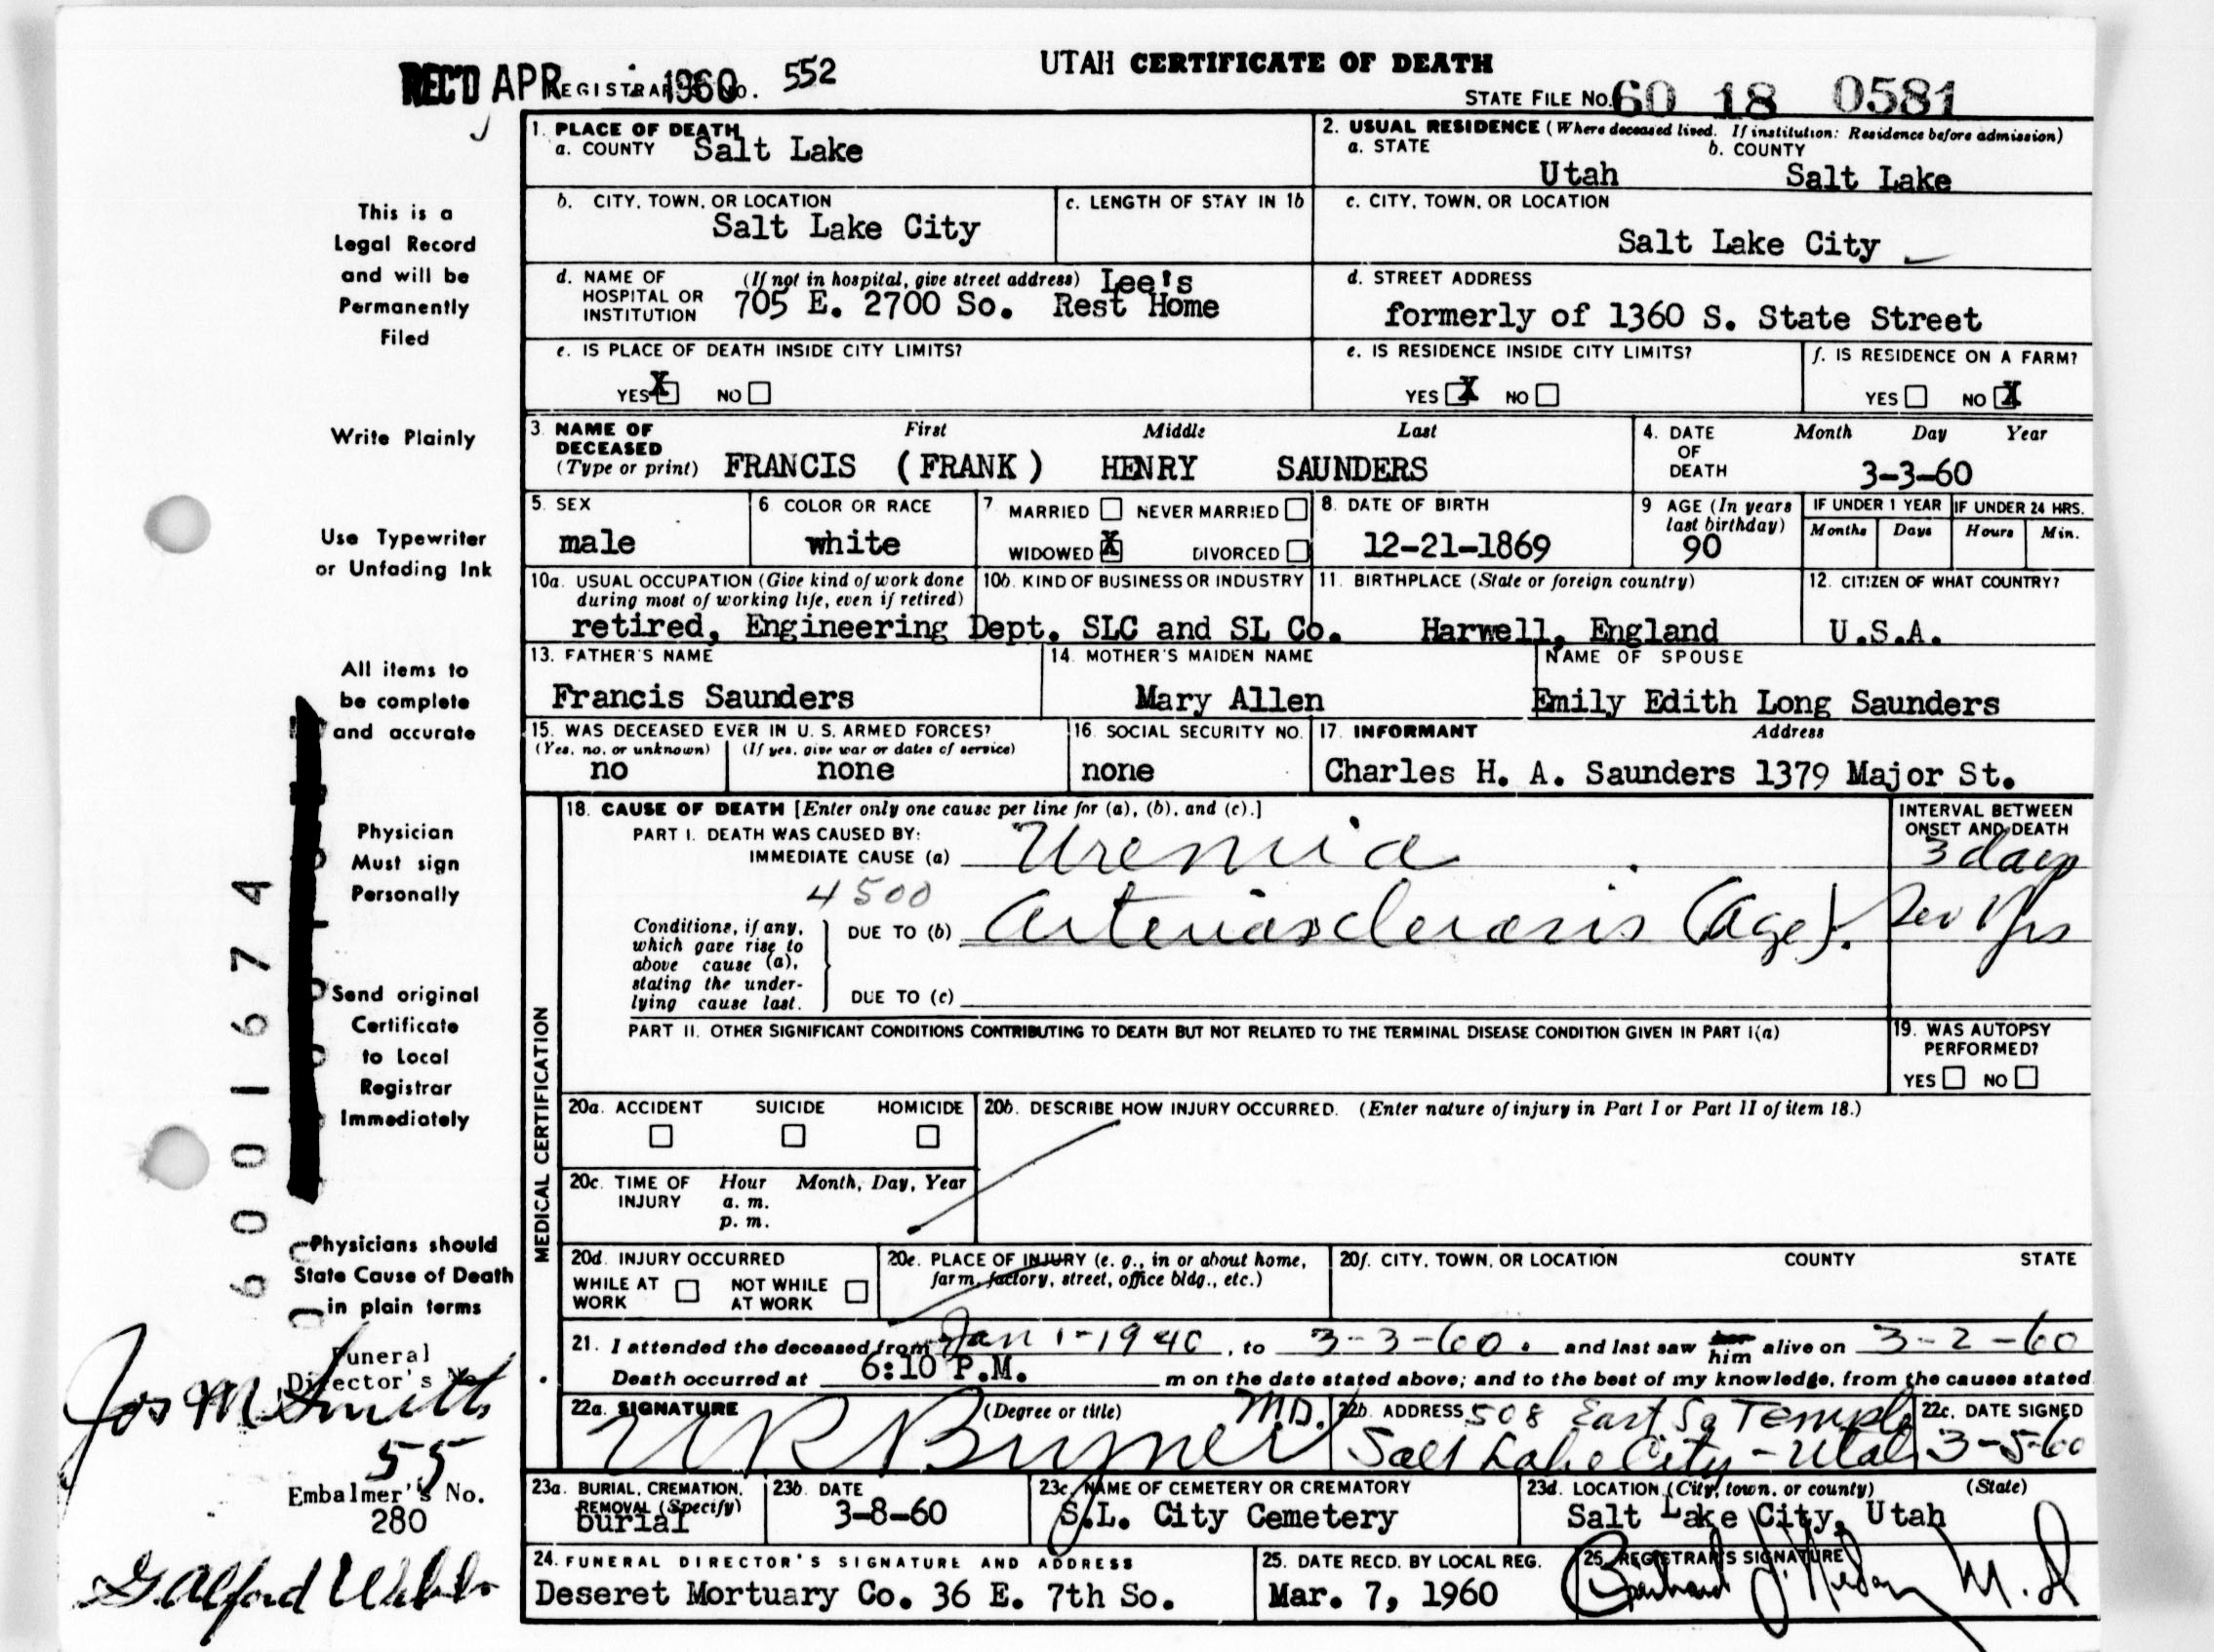 UTAH CERTIFICATE OF DEATH
REC'D APR 1960 REGISTRAR'S NO. 552
STATE FILE NO. 60 18 0581
This is a
Legal Record
and will be
Permanently
Filed
Write Plainly
Use Typewriter
or Unfading Ink
All items to
be complete
and accurate
Physician
Must sign
Personally
Send original
Certificate
to Local
Registrar
Immediately
Physicians should
State Cause of Death
in plain terms
Funeral
Director's No.
Jos M Smith
55
Embalmer's No.
280
G Alford Webb
6001674
1. PLACE OF DEATH
a. COUNTY Salt Lake
2. USUAL RESIDENCE (Where deceased lived. If institution: Residence before admission)
a. STATE b. COUNTY
Utah Salt Lake
b. CITY, TOWN, OR LOCATION
Salt Lake City
c. LENGTH OF STAY IN 1b
c. CITY, TOWN, OR LOCATION
Salt Lake City
d. NAME OF HOSPITAL OR INSTITUTION (If not in hospital, give street address) Lee's
705 E. 2700 So. Rest Home
d. STREET ADDRESS
formerly of 1360 S. State Street
e. IS PLACE OF DEATH INSIDE CITY LIMITS?
YES X NO
e. IS RESIDENCE INSIDE CITY LIMITS?
YES X NO
f. IS RESIDENCE ON A FARM?
YES NO X
3. NAME OF DECEASED (Type or print) First Middle Last
FRANCIS (FRANK) HENRY SAUNDERS
4. DATE OF DEATH Month Day Year
3-3-60
5. SEX
male
6 COLOR OR RACE
white
7 MARRIED NEVER MARRIED
WIDOWED X DIVORCED
8. DATE OF BIRTH
12-21-1869
9 AGE (In years last birthday)
90
IF UNDER 1 YEAR
Months Days
IF UNDER 24 HRS.
Hours Min.
10a. USUAL OCCUPATION (Give kind of work done during most of working life, even if retired)
10b. KIND OF BUSINESS OR INDUSTRY
retired, Engineering Dept. SLC and SL Co.
11. BIRTHPLACE (State or foreign country)
Harwell, England
12. CITIZEN OF WHAT COUNTRY?
U.S.A.
13. FATHER'S NAME
Francis Saunders
14. MOTHER'S MAIDEN NAME
Mary Allen
NAME OF SPOUSE
Emily Edith Long Saunders
15. WAS DECEASED EVER IN U. S. ARMED FORCES?
(Yes, no, or unknown) (If yes, give war or dates of service)
no none
16. SOCIAL SECURITY NO.
none
17. INFORMANT Address
Charles H. A. Saunders 1379 Major St.
MEDICAL CERTIFICATION
18. CAUSE OF DEATH [Enter only one cause per line for (a), (b), and (c).]
INTERVAL BETWEEN ONSET AND DEATH
PART I. DEATH WAS CAUSED BY:
IMMEDIATE CAUSE (a) Uremia 3 days
4500
Conditions, if any, which gave rise to above cause (a), stating the underlying cause last.
DUE TO (b) Arteriosclerosis (age). Sev Yrs
DUE TO (c)
PART II. OTHER SIGNIFICANT CONDITIONS CONTRIBUTING TO DEATH BUT NOT RELATED TO THE TERMINAL DISEASE CONDITION GIVEN IN PART I(a)
19. WAS AUTOPSY PERFORMED?
YES NO
20a. ACCIDENT SUICIDE HOMICIDE
20b. DESCRIBE HOW INJURY OCCURRED. (Enter nature of injury in Part I or Part II of item 18.)
20c. TIME OF INJURY Hour Month, Day, Year
a. m.
p. m.
20d. INJURY OCCURRED
WHILE AT WORK NOT WHILE AT WORK
20e. PLACE OF INJURY (e. g., in or about home, farm, factory, street, office bldg., etc.)
20f. CITY, TOWN, OR LOCATION COUNTY STATE
21. I attended the deceased from Jan 1-1940, to 3-3-60. and last saw her him alive on 3-2-60
Death occurred at 6:10 P.M. m on the date stated above; and to the best of my knowledge, from the causes stated
22a. SIGNATURE (Degree or title) M.D.
22b. ADDRESS 508 East So Temple
Salt Lake City - Utah
22c. DATE SIGNED
3-5-60
23a. BURIAL, CREMATION, REMOVAL (Specify)
burial
23b. DATE
3-8-60
23c. NAME OF CEMETERY OR CREMATORY
S.L. City Cemetery
23d. LOCATION (City, town, or county) (State)
Salt Lake City, Utah
24. FUNERAL DIRECTOR'S SIGNATURE AND ADDRESS
Deseret Mortuary Co. 36 E. 7th So.
25. DATE RECD. BY LOCAL REG.
Mar. 7, 1960
26. REGISTRAR'S SIGNATURE
M.D